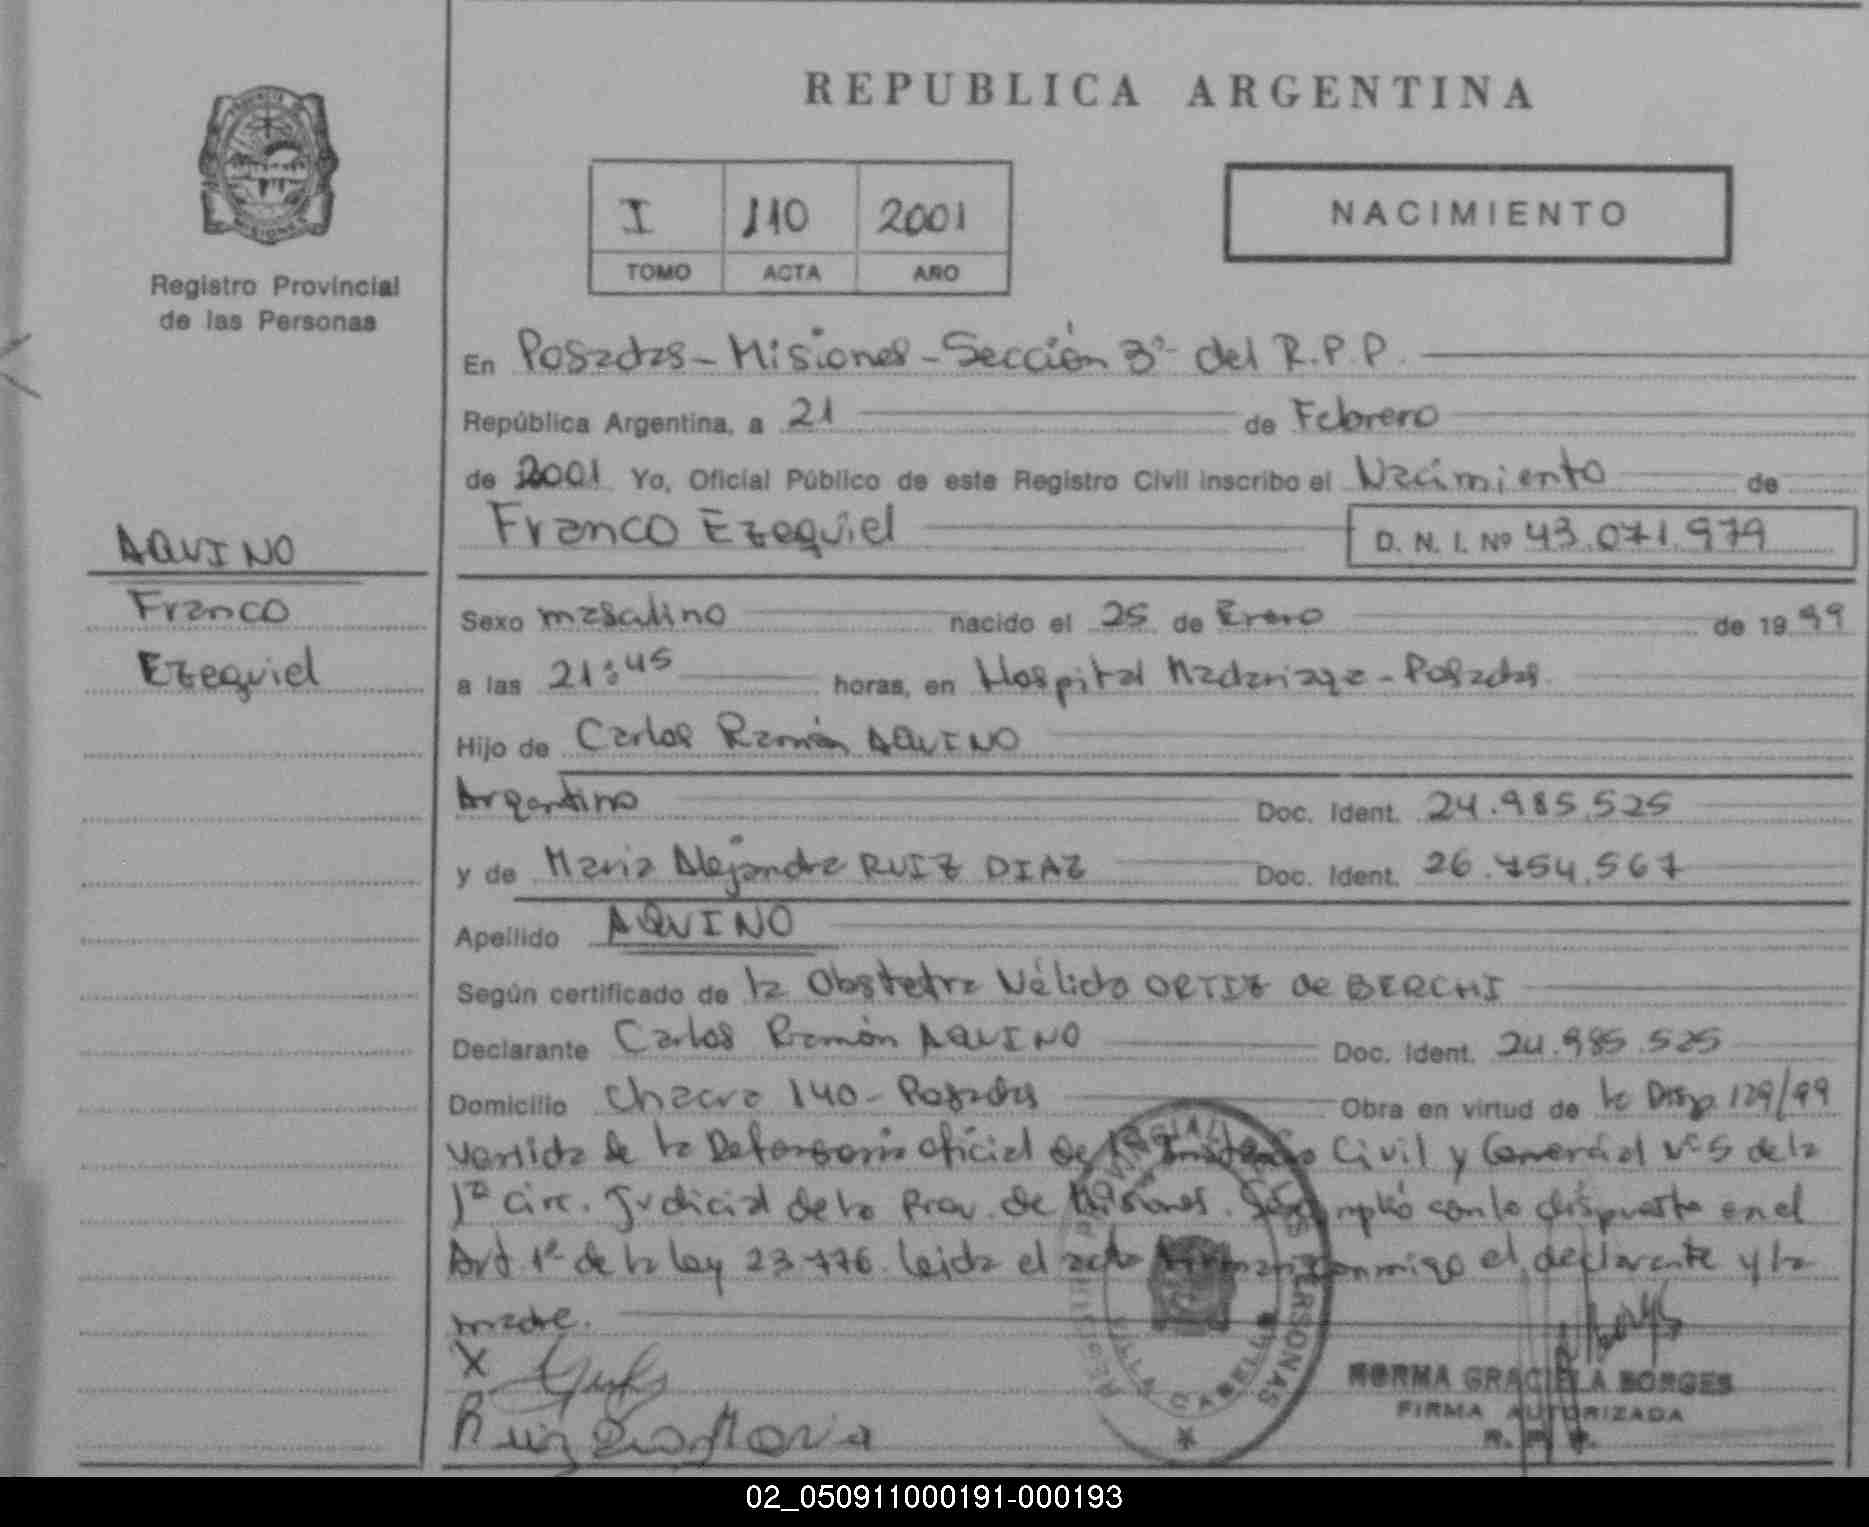 REPUBLICA ARGENTINA
I 110 2001
TOMO ACTA AÑO
NACIMIENTO
Registro Provincial
de las Personas
En Posadas - Misiones - Sección 3ª del R.P.P.
República Argentina, a 21 de Febrero
de 2001 Yo, Oficial Público de este Registro Civil inscribo el Nacimiento de
Franco Ezequiel D. N. I. Nº 43.071.979
AQUINO
Franco
Ezequiel
Sexo masculino nacido el 25 de Enero de 19 99
a las 21:45 horas, en Hospital Madariaga - Posadas
Hijo de Carlos Ramón AQUINO
Argentino Doc. Ident. 24.985.525
y de Maria Alejandra RUIZ DIAZ Doc. Ident. 26.754.567
Apellido AQUINO
Según certificado de la Obstetra Nélida ORTIZ de BERCHI
Declarante Carlos Ramón AQUINO Doc. Ident. 24.985.525
Domicilio Chacra 140 - Posadas Obra en virtud de la Disp. 129/99
vertida de la Defensoria oficial de Civil y Comercial Nº 5 de la
1ª circ. Judicial de la Prov. de Misiones. Se cumplió con lo dispuesto en el
Art 1º de la ley 23.776. Leida el acta firman conmigo el declarante y la
madre.
X
Ruiz Diaz Maria
NORMA GRACIELA BORGES
FIRMA AUTORIZADA
R. P. P.
02_050911000191-000193